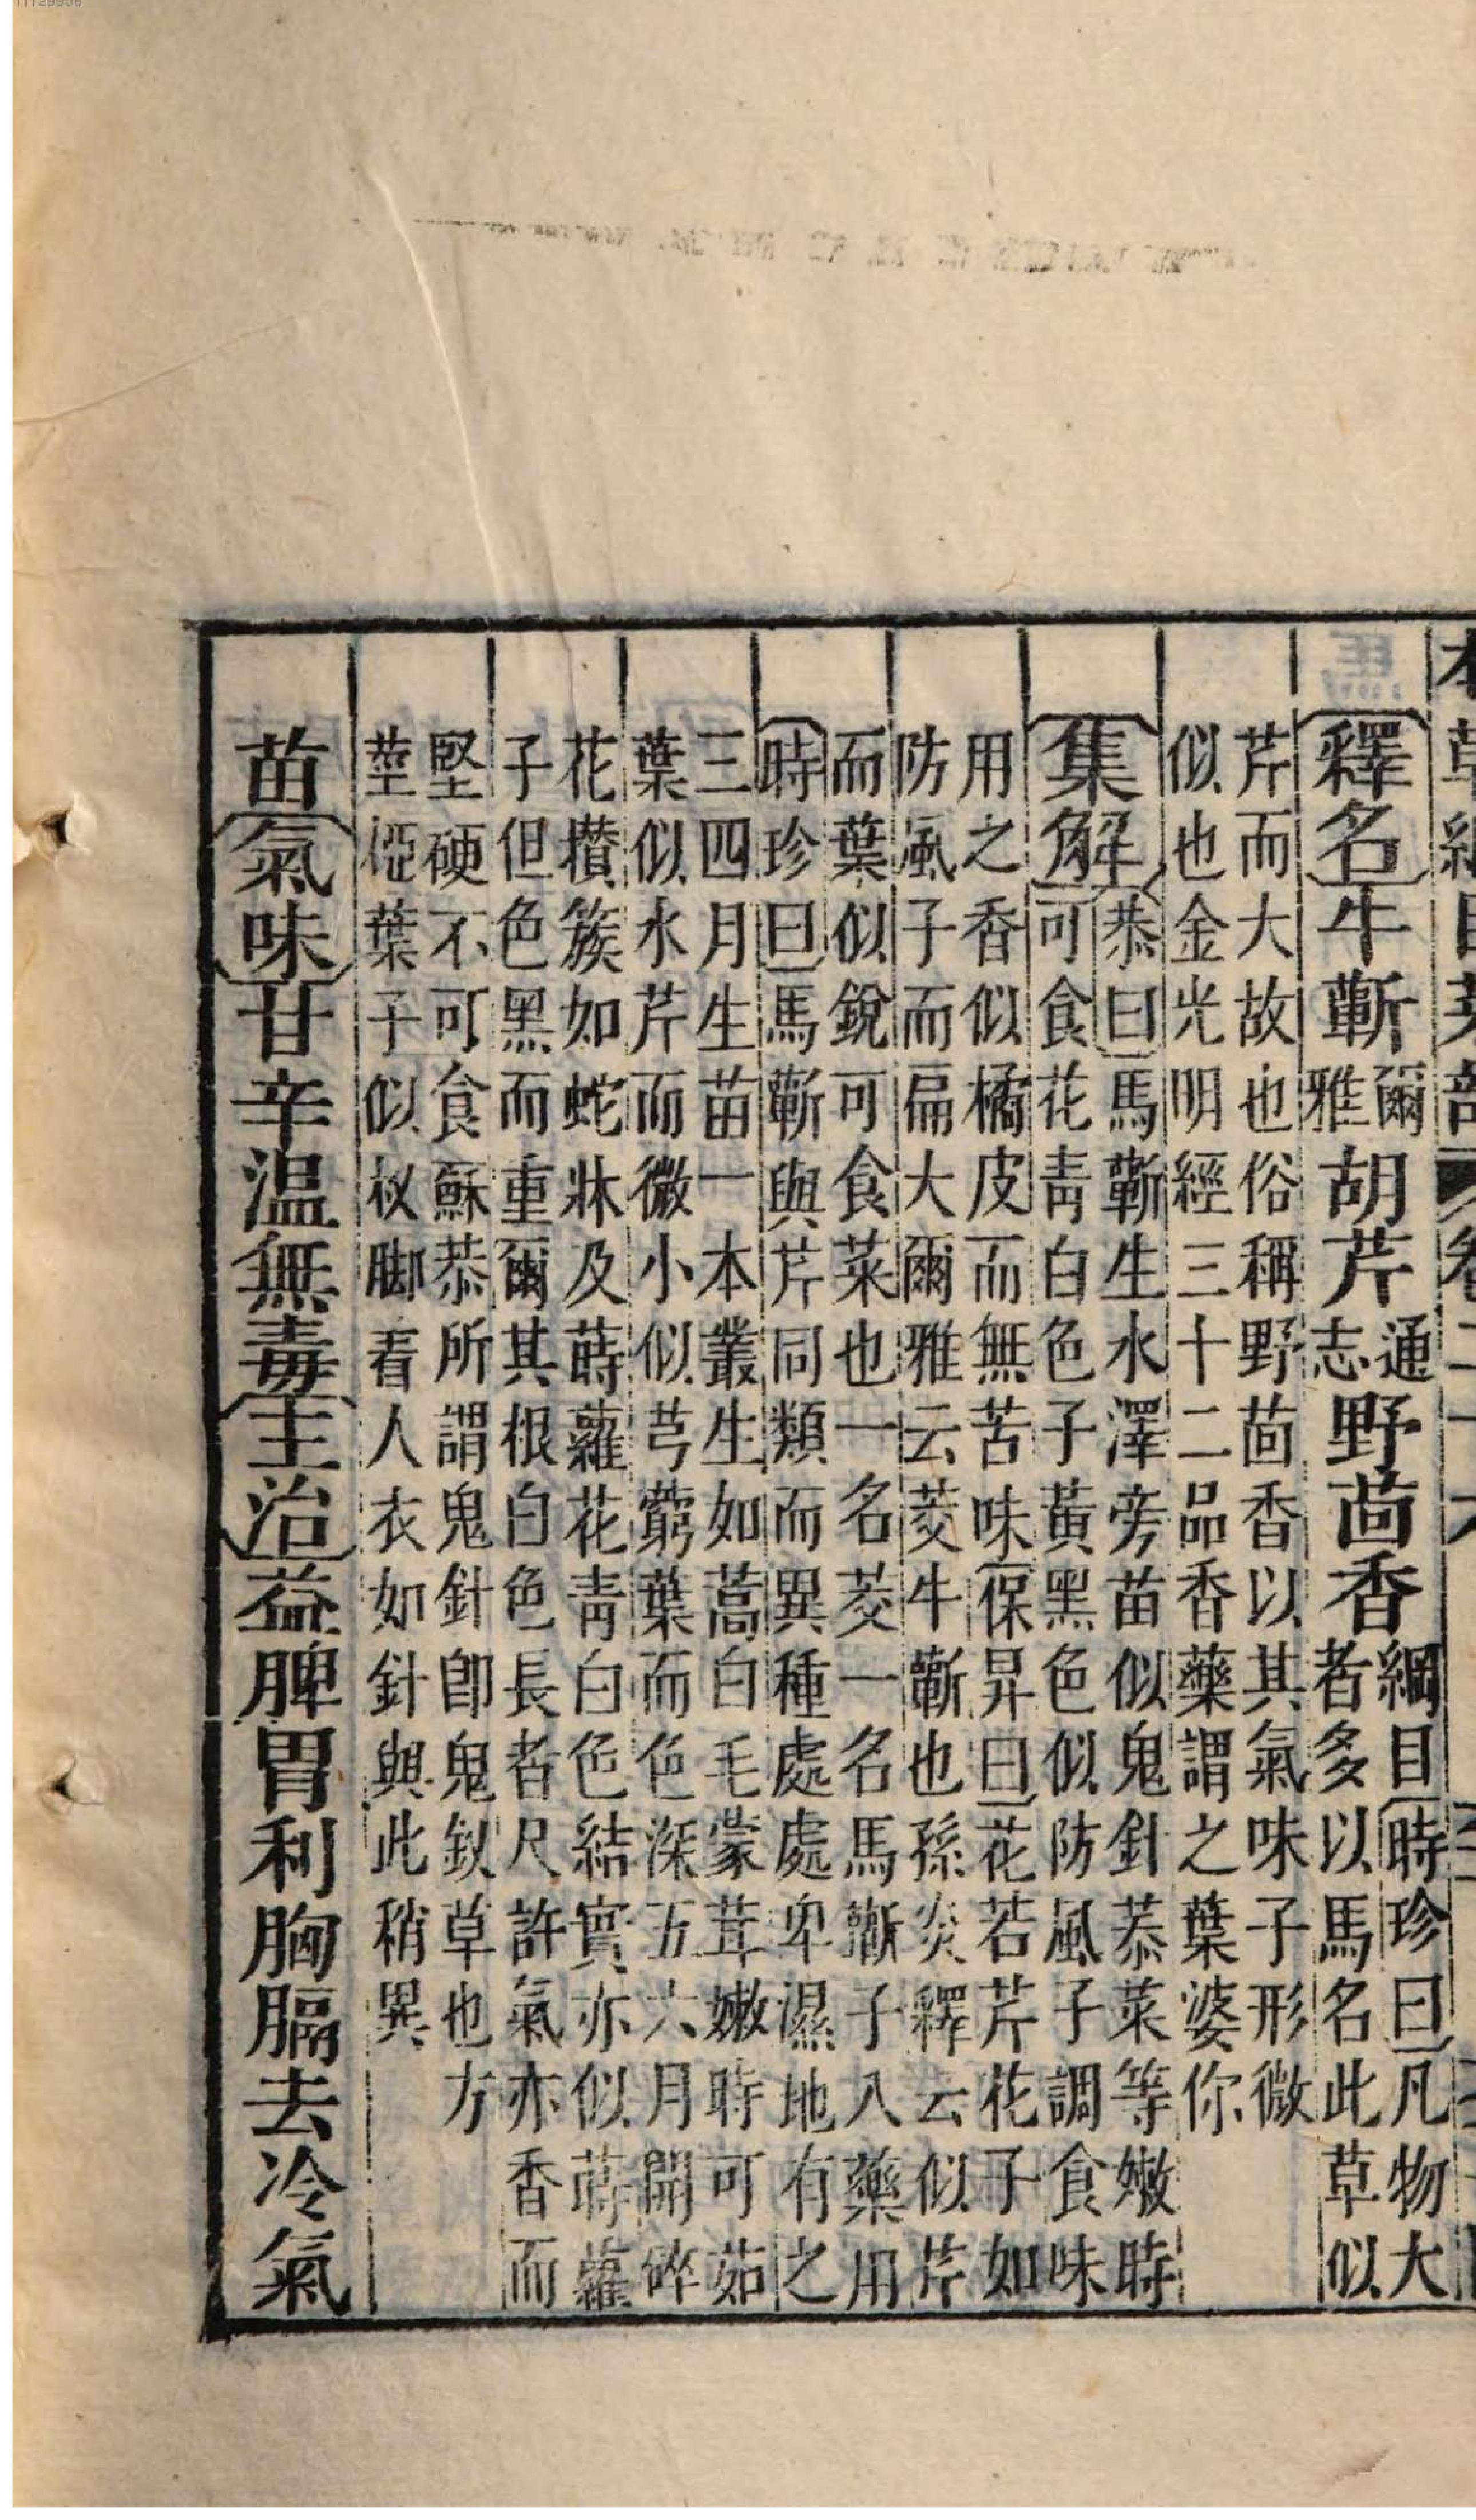 本草綱目菜部 卷二十六
釋名牛蘄爾雅胡芹通志野茴香綱目時珍曰凡物大
者多以馬名此草似
芹而大故也俗稱野茴香以其氣味子形微
似也金光明經三十二品香藥謂之葉婆你
集解恭曰馬蘄生水澤旁苗似鬼針恭菜等嫩時
可食花青白色子黃黑色似防風子調食味
用之香似橘皮而無苦味保昇曰花若芹花子如
防風子而扁大爾雅云茭牛蘄也孫炎釋云似芹
而葉似銳可食菜也一名茭一名馬蘄子入藥用
時珍曰馬蘄與芹同類而異種處處卑濕地有之
三四月生苗一本叢生如蒿白毛蒙茸嫩時可茹
葉似水芹而微小似芎藭葉而色深五六月開碎
花攢簇如蛇牀及蒔蘿花青白色結實亦似蒔蘿
子但色黑而重爾其根白色長者尺許氣亦香而
堅硬不可食蘇恭所謂鬼針卽鬼釵草也方
莖椏葉子似杈脚着人衣如針與此稍異
苗氣味甘辛温無毒主治益脾胃利胸膈去冷氣